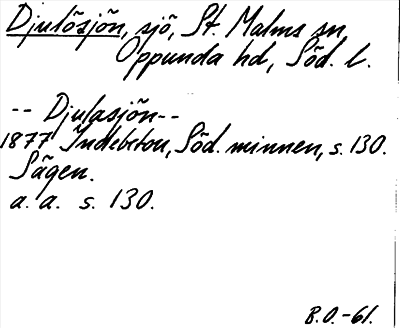 Djulösjön, sjö, St. Malms sn,
Oppunda hd, Söd. l.
-- Djulasjön--
1877 Indebetou, Söd. minnen, s. 130.
Sägen.
a. a. s. 130.
B.O.-61.